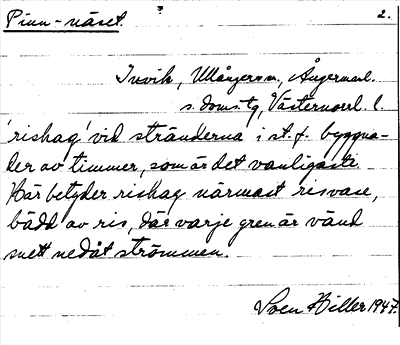 Pinn-näset. 2.
Invik, Ullångers sn, Ångermanl.
s. doms. tg, Västernorrl. l.
'rishag' vid stränderna i st. f. byggna-
der av timmer, som är det vanligaste
Här betyder rishag närmast risvase,
bädd av ris, där varje gren är vänd
snett nedåt strömmen.
Sven Hiller 1947.